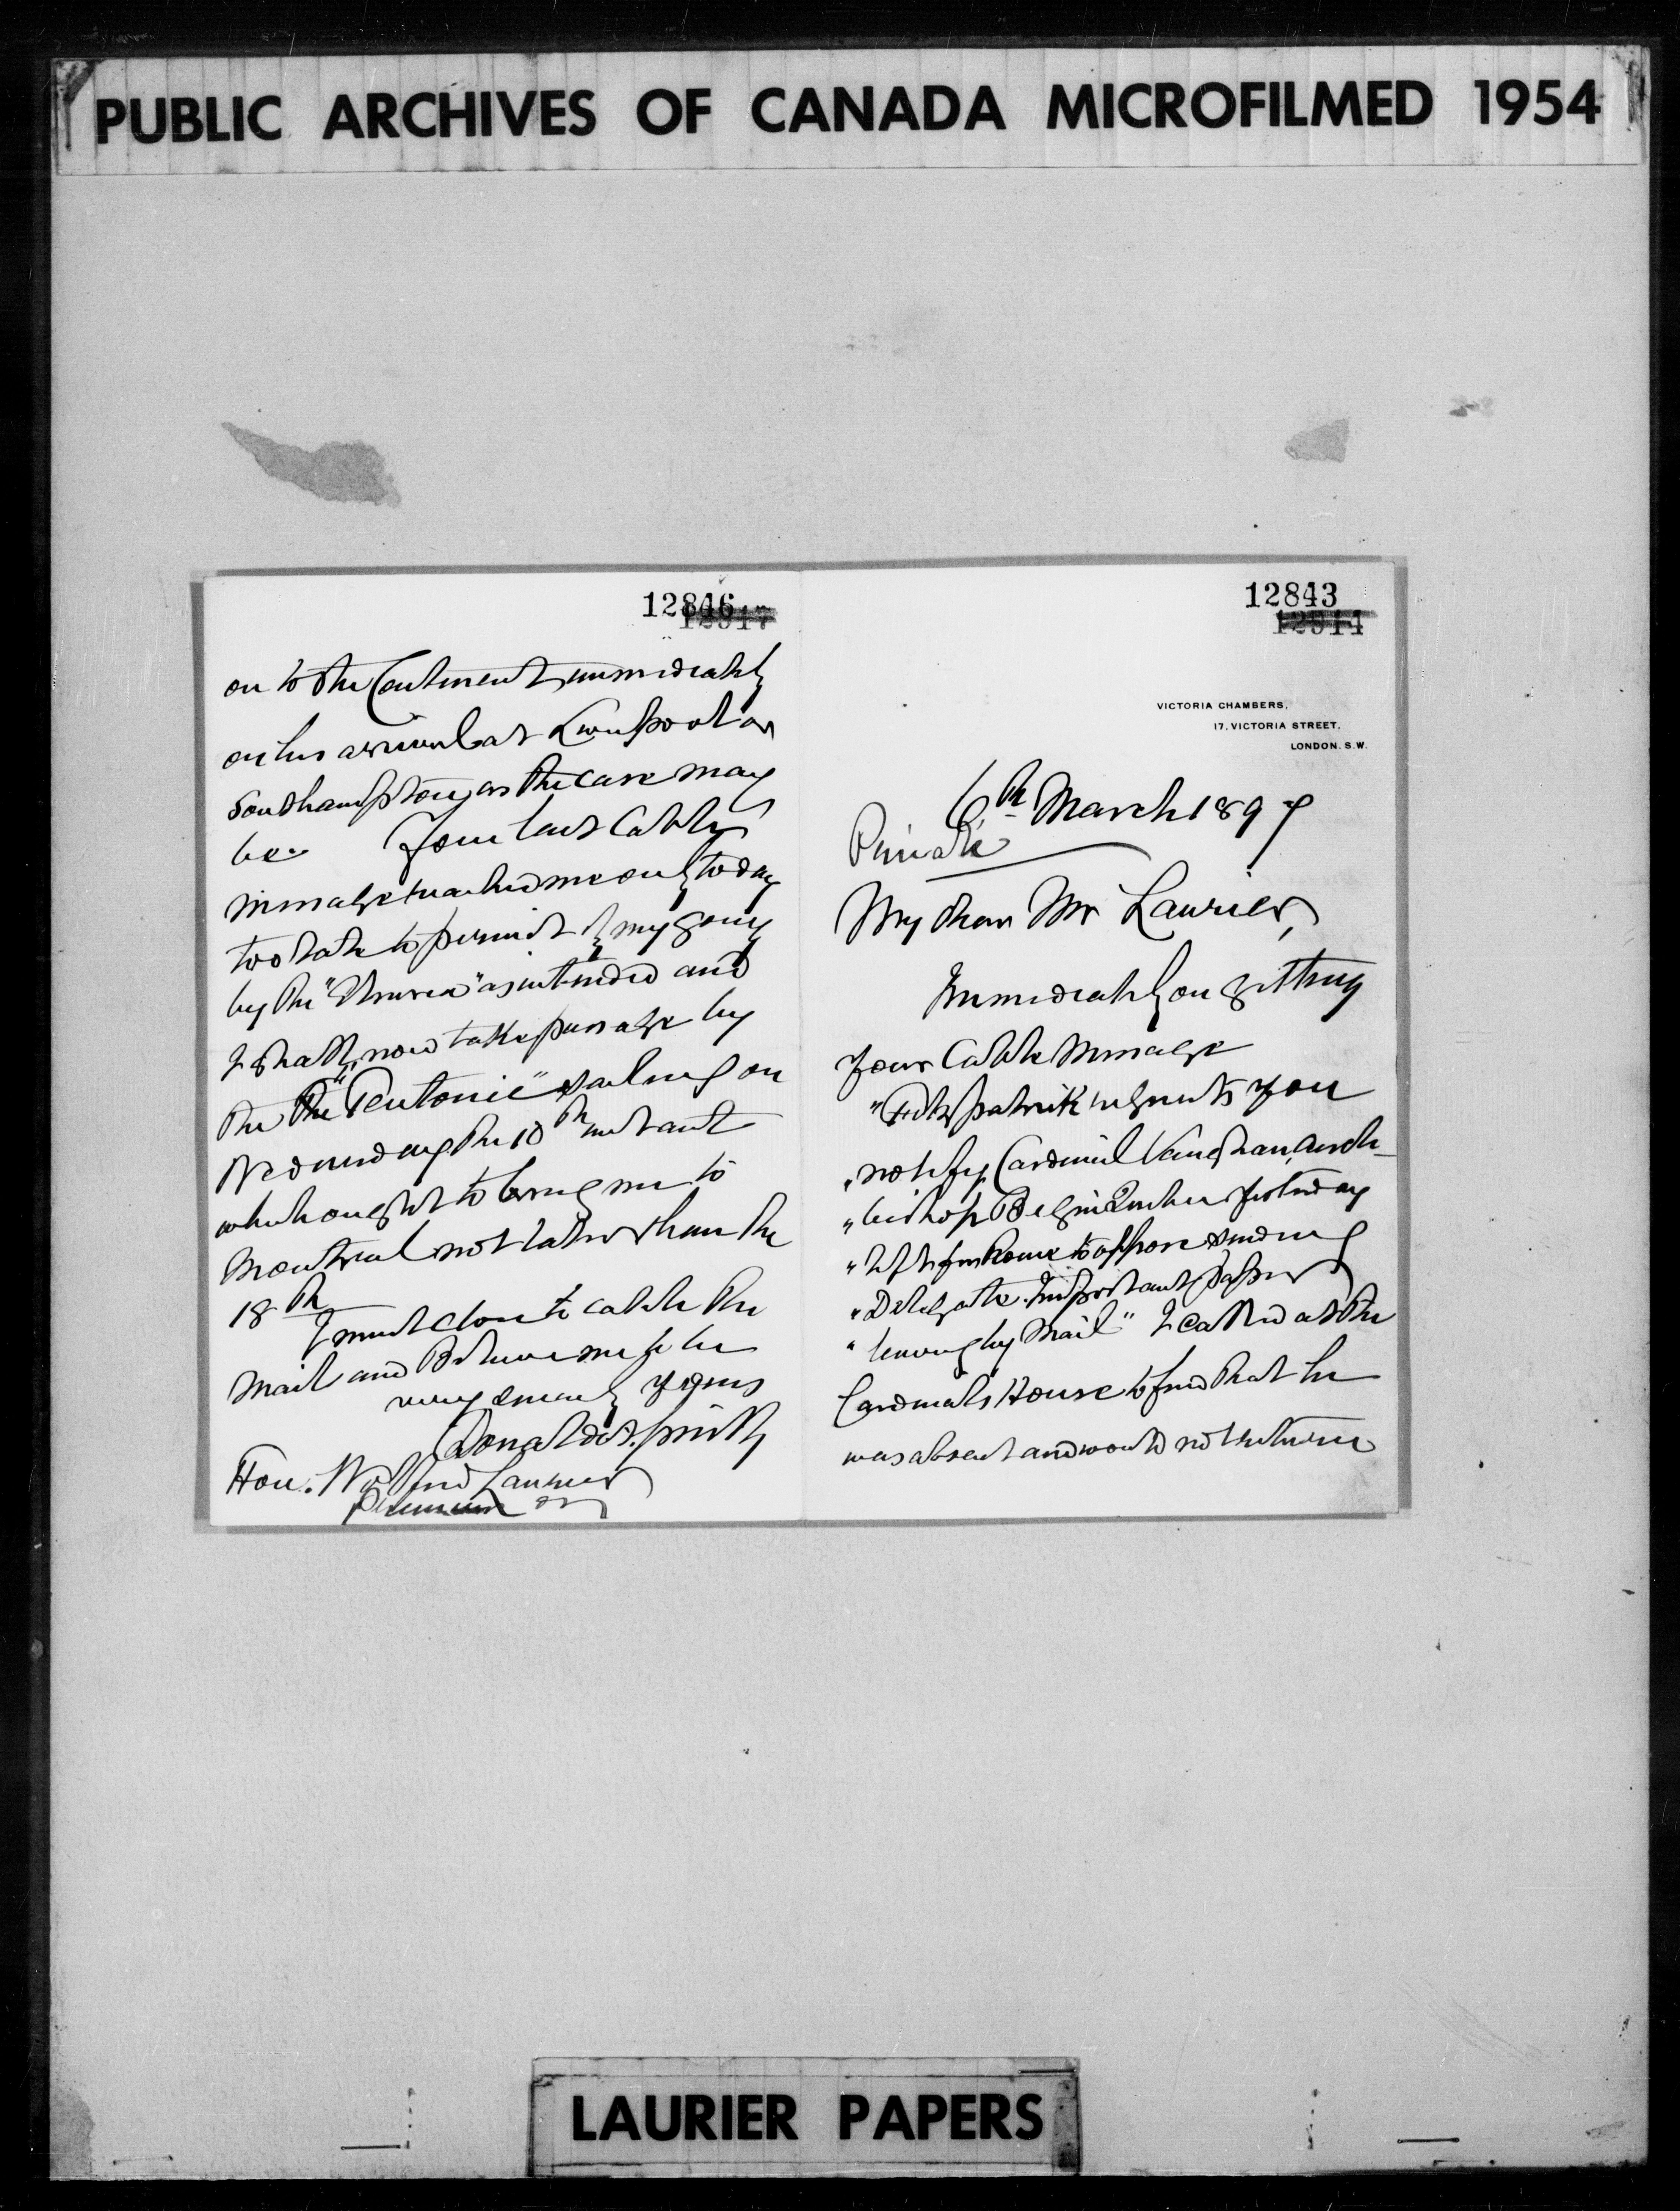 PUBLIC ARCHIVES OF CANADA MICROFILMED 1954
12846
on to the Continent immediately
on his arrival at Liverpool or
Southampton, as the case may
be. Your last Cable
message reached me only today
too late to permit of my going
by the "Umbria" as intended and
I shall now take passage by
the the "Teutonic" sailing on
Wednesday the 10th instant
which ought to bring me to
Montreal not later than the
18th
I must close to catch the
Mail and Believe me to be
very sincerely yours
Donald A. Smith
Hon. Wilfrid Laurier
12843
VICTORIA CHAMBERS,
17, VICTORIA STREET,
LONDON. S.W.
6th March 1897
Private
My dear Mr Laurier,
Immediately on getting
your Cable Message
"Fitzpatrick requests you
"notify Cardinal Vaughan, Arch-
"bishop Begin Quebec yesterday
"left for Rome to oppose sending
"Delegate. Important papers
"leaving by Mail" I called at the
Cardinals House to find that he
was absent and would not return
LAURIER PAPERS